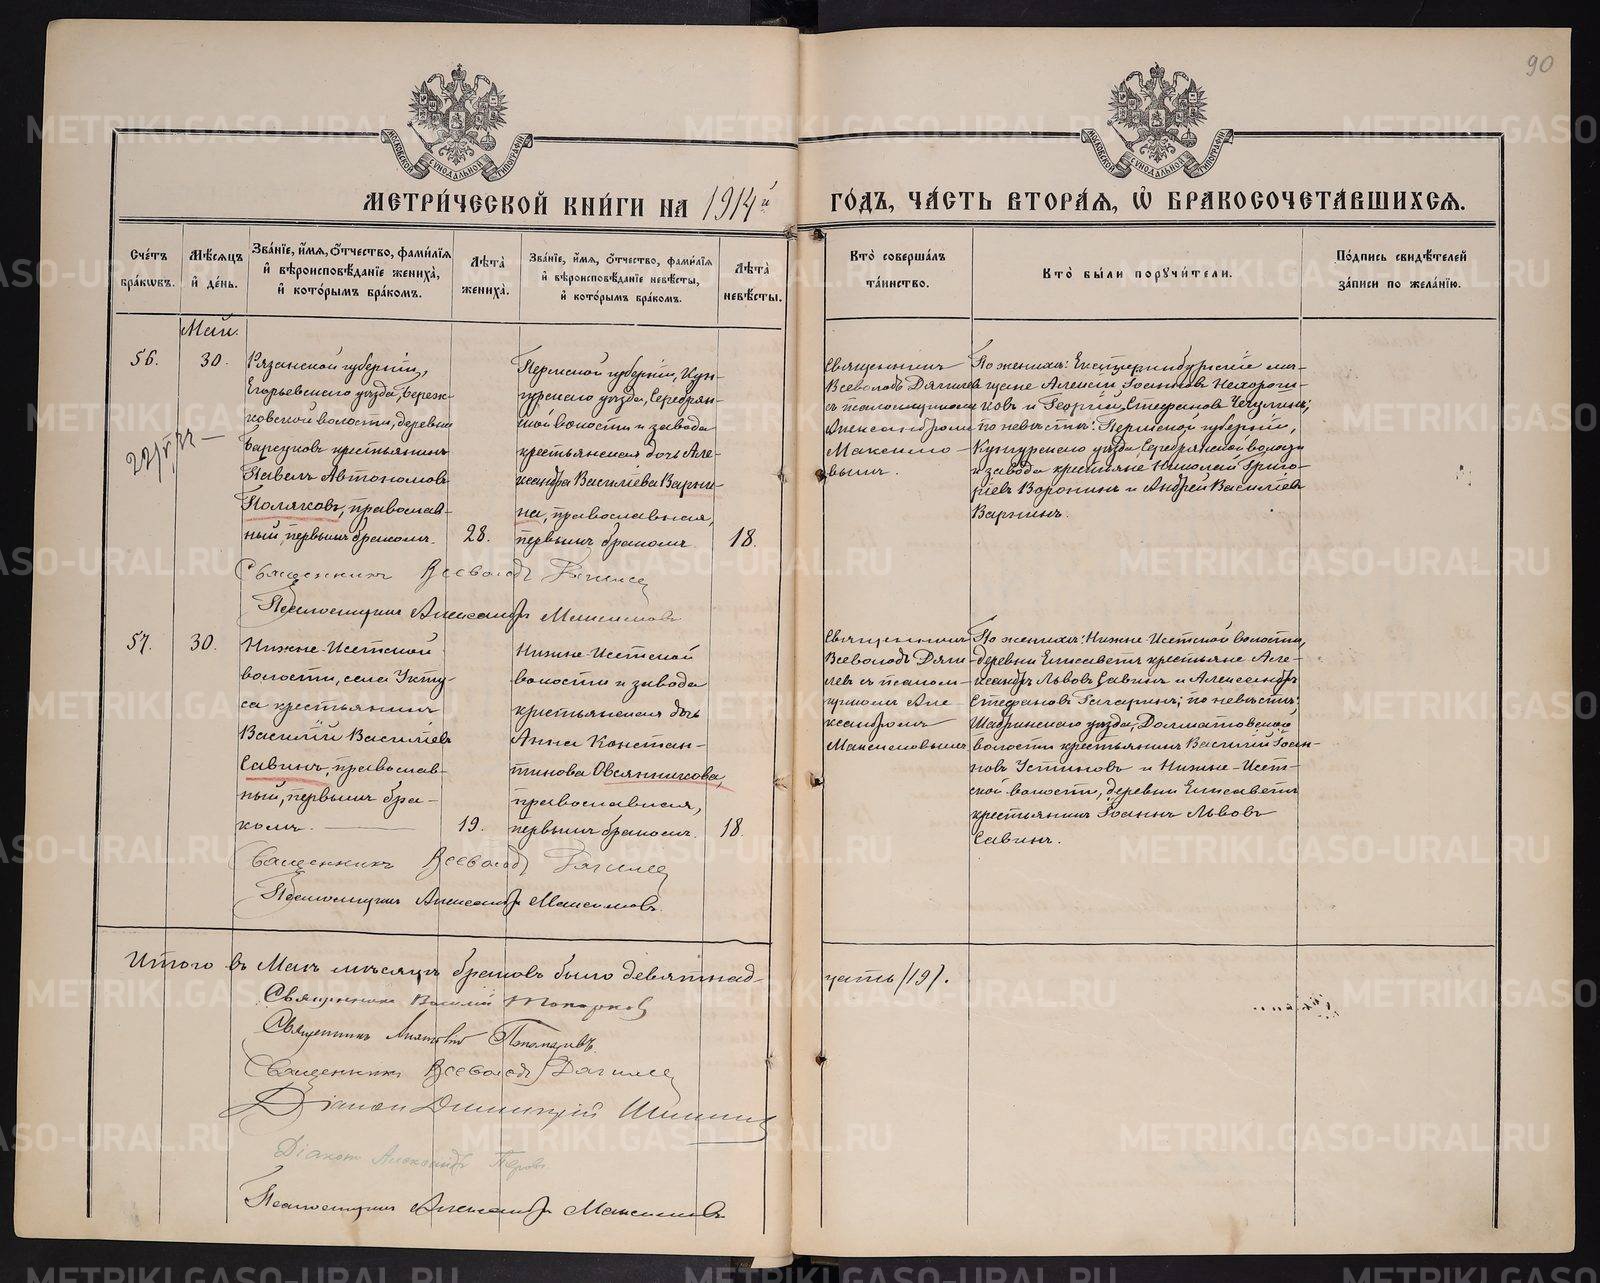 90
МОСКОВСКОЙ СѴНОДАЛЬНОЙ ТИПОГРАФІИ
МОСКОВСКОЙ СѴНОДАЛЬНОЙ ТИПОГРАФІИ
МЕТРИ́ЧЕСКОЙ КНИ́ГИ НА 1914й ГО́ДЪ, ЧА́СТЬ ВТОРА́Я, Ѡ҆ БРАКОСОЧЕТА́ВШИХСЯ.
Сче́тъ бра́кѡвъ.
Мѣ́сяцъ и҆ де́нь.
Зва́нїе, и҆́мя, ѻ҆́тчество, фами́лїя и҆ вѣроисповѣ́данїе жениха̀, и҆ кото́рымъ бра́комъ.
Лѣ́та жениха̀.
Зва́нїе, и҆́мя, ѻ҆́тчество, фами́лїя и҆ вѣроисповѣ́данїе невѣ́сты, и҆ кото́рымъ бра́комъ.
Лѣ́та невѣ́сты.
Кто̀ соверша́лъ та́инство.
Кто̀ бы́ли порꙋчи́тели.
По́дпись свидѣ́телей за́писи по жела́нїю.
Май.
56.
30.
22/V 32 —
Рязанской губерніи,
Егорьевскаго уѣзда, Береж-
ковской волости, деревни
Барсуковъ крестьянинъ
Павелъ Автономовъ
Поляковъ, православ-
ный, первымъ бракомъ.
28.
Пермской губерніи, Кун-
гурскаго уѣзда, Серебрян-
ской волости и завода
крестьянская дочь Але-
ксандра Василіева Варги-
на, православная,
первымъ бракомъ.
18.
Священникъ
Всеволодъ Дягилевъ
съ псаломщикомъ
Александромъ
Максимо-
вымъ.
По женихѣ: Екатеринбургскіе мѣ-
щане Алексій Іоанновъ Нехороши-
ковъ и Георгій Стефановъ Чечулинъ;
по невѣстѣ: Пермской губерніи,
Кунгурскаго уѣзда, Серебрянской волости
и завода крестьяне Николай Григо-
ріевъ Воронинъ и Андрей Василіевъ
Варгинъ.
Священникъ Всеволодъ Дягилевъ
Псаломщикъ Александръ Максимовъ
57.
30.
Нижне-Исетской
волости, села Укту-
са крестьянинъ
Василій Василіевъ
Савинъ, православ-
ный, первымъ бра-
комъ.
19.
Нижне-Исетской
волости и завода
крестьянская дочь
Анна Констан-
тинова Овсянникова,
православная,
первымъ бракомъ.
18.
Священникъ
Всеволодъ Дяги-
левъ съ псалом-
щикомъ Але-
ксандромъ
Максимовымъ.
По женихѣ: Нижне-Исетской волости,
деревни Елисаветъ крестьяне Але-
ксандръ Львовъ Савинъ и Александръ
Стефановъ Гагаринъ; по невѣстѣ:
Шадринскаго уѣзда, Долматовской
волости крестьянинъ Василій Іоан-
новъ Устиновъ и Нижне-Исет-
ской волости, деревни Елисаветъ
крестьянинъ Іоаннъ Львовъ
Савинъ.
Священникъ Всеволодъ Дягилевъ
Псаломщикъ Александръ Максимовъ.
Итого въ Маѣ мѣсяцѣ браковъ было девятнад-
цать /19/.
Священникъ Василій
Священникъ Пономаревъ
Священникъ Всеволодъ Дягилевъ
Діаконъ Димитрій Шишкинъ
Діаконъ Александръ
Псаломщикъ Александръ Максимовъ
METRIKI.GASO-URAL.RU